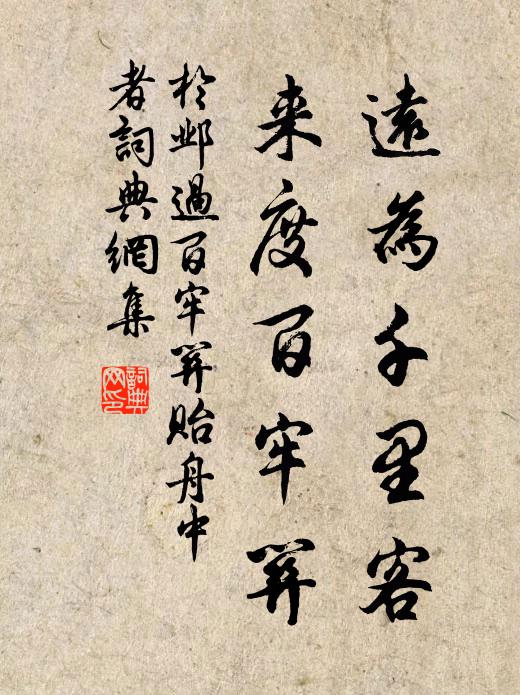 遠為千里客
来度百牢關
於邺過百牢關貽舟中
者詞典網集
詞典
网印